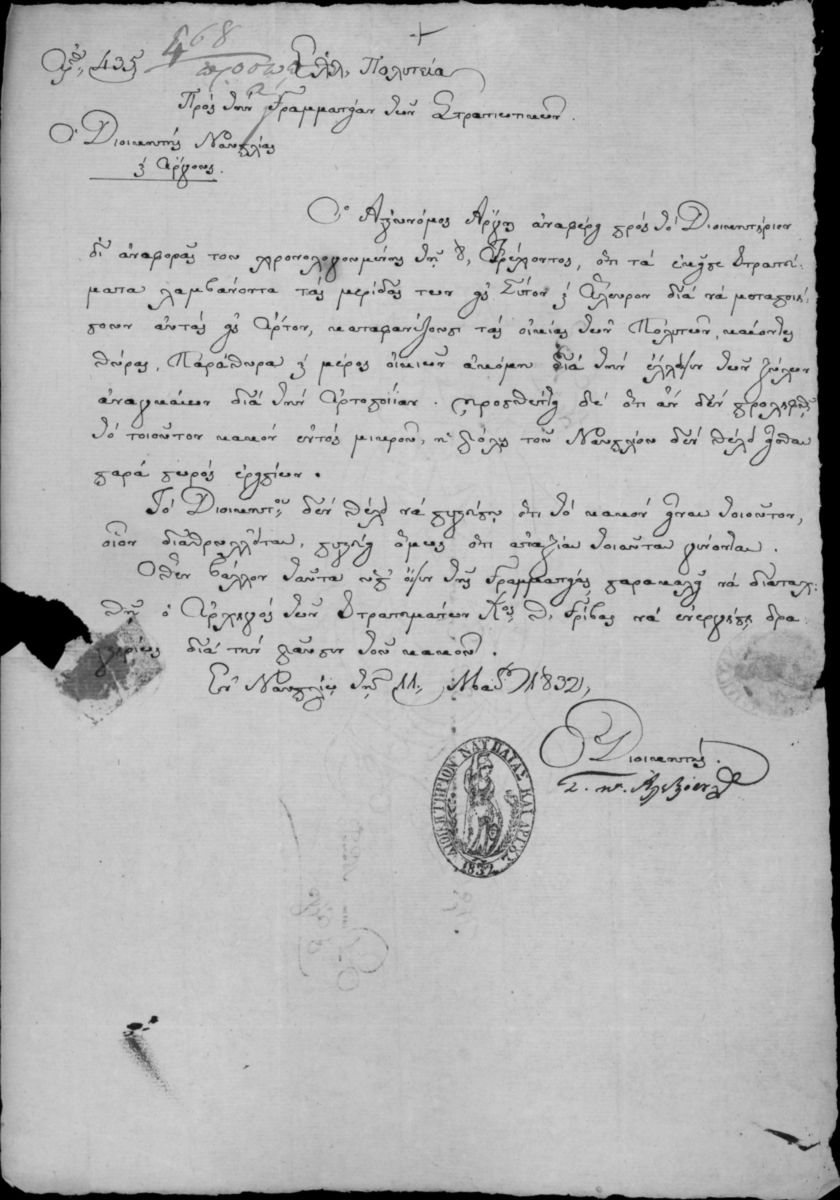 468
Ἀρ. 435 Ἑλλ. Πολιτεία
Πρὸς τὴν Γραμματείαν τῶν Στρατιωτικῶν.
Ὁ Διοικητὴς Ναυπλίας
ϗ Ἄργους.
Ὁ Ἀστυνόμος ἀναφέρει πρὸς τὸ Διοικητήριον
δι' ἀναφορᾶς του χρονολογουμένης τῆς ὅτι τὰ στρατεύ-
ματα λαμβάνοντα τὰς μερίδας των εἰς Σῖτον ϗ Ἄλευρον διὰ νὰ μεταποιή-
σουν αὐτὰς εἰς Ἄρτον, καταφανίζουσι τὰς οἰκίας τῶν Πολιτῶν, καίοντες
θύρας, Παράθυρα ϗ μέρος οἰκιῶν ἀκόμη διὰ τὴν ἔλλειψιν τῶν ξύλων
ἀναγκαίων διὰ τὴν ἀρτοποιΐαν. προσθέτει δὲ ὅτι ἂν δὲν προληφθῇ
τὸ τοιοῦτον κακὸν ἐντὸς μικροῦ, ἡ πόλις τοῦ Ναυπλίου δὲν θέλει εἶσθαι
παρὰ σωρὸς ἐρειπίων.
Τὸ Διοικητ. δὲν θέλει νὰ πιστεύσῃ ὅτι τὸ κακὸν εἶναι τοιοῦτον,
οἷον διαθρυλλεῖται, πιστεύει ὅμως ὅτι ἀταξίαι τοιαῦται γίνονται.
Ὅθεν βάλλον ταῦτα ὑπ' ὄψιν τῆς Γραμματείας παρακαλεῖ νὰ διαταχ-
θῇ ὁ Ἀρχηγὸς τῶν Στρατευμάτων Κος Θ. Γρίβας νὰ ἐνεργήσῃ δρα-
στηρίως διὰ τὴν παῦσιν τοῦ κακοῦ.
Ἐν Ναυπλίῳ τῇ 11. 1832,
Ὁ Διοικητής.
ΔΙΟΙΚΗΤΗΡΙΟΝ ΝΑΥΠΛΙΑΣ ΚΑΙ ΑΡΓΟΥΣ
1832